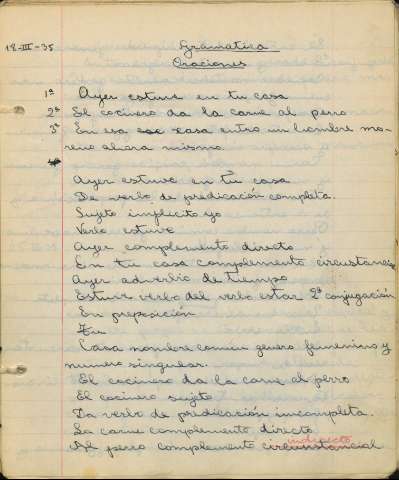 18-III-35 Gramática
Oraciones
1ª Ayer estuve en tu casa
2ª El cocinero da la carne al perro
3ª En esa casa entro un hombre mo-
reno ahora mismo.
Ayer estuve en tu casa
De verbo de predicación completa.
Sujeto implicito yo
Verbo estuve
Ayer complemento directo
En tu casa complemento circustancia
Ayer adverbio de tiempo
Estuve verbo del verbo estar 2ª conjugación
En preposición
Casa nombre común genero femenino y
numero singular.
El cocinero da la carne al perro
El cocinero sujeto
Da verbo de predicación incompleta.
La carne complemento directo
indirecto
Al perro complemento circunstancial